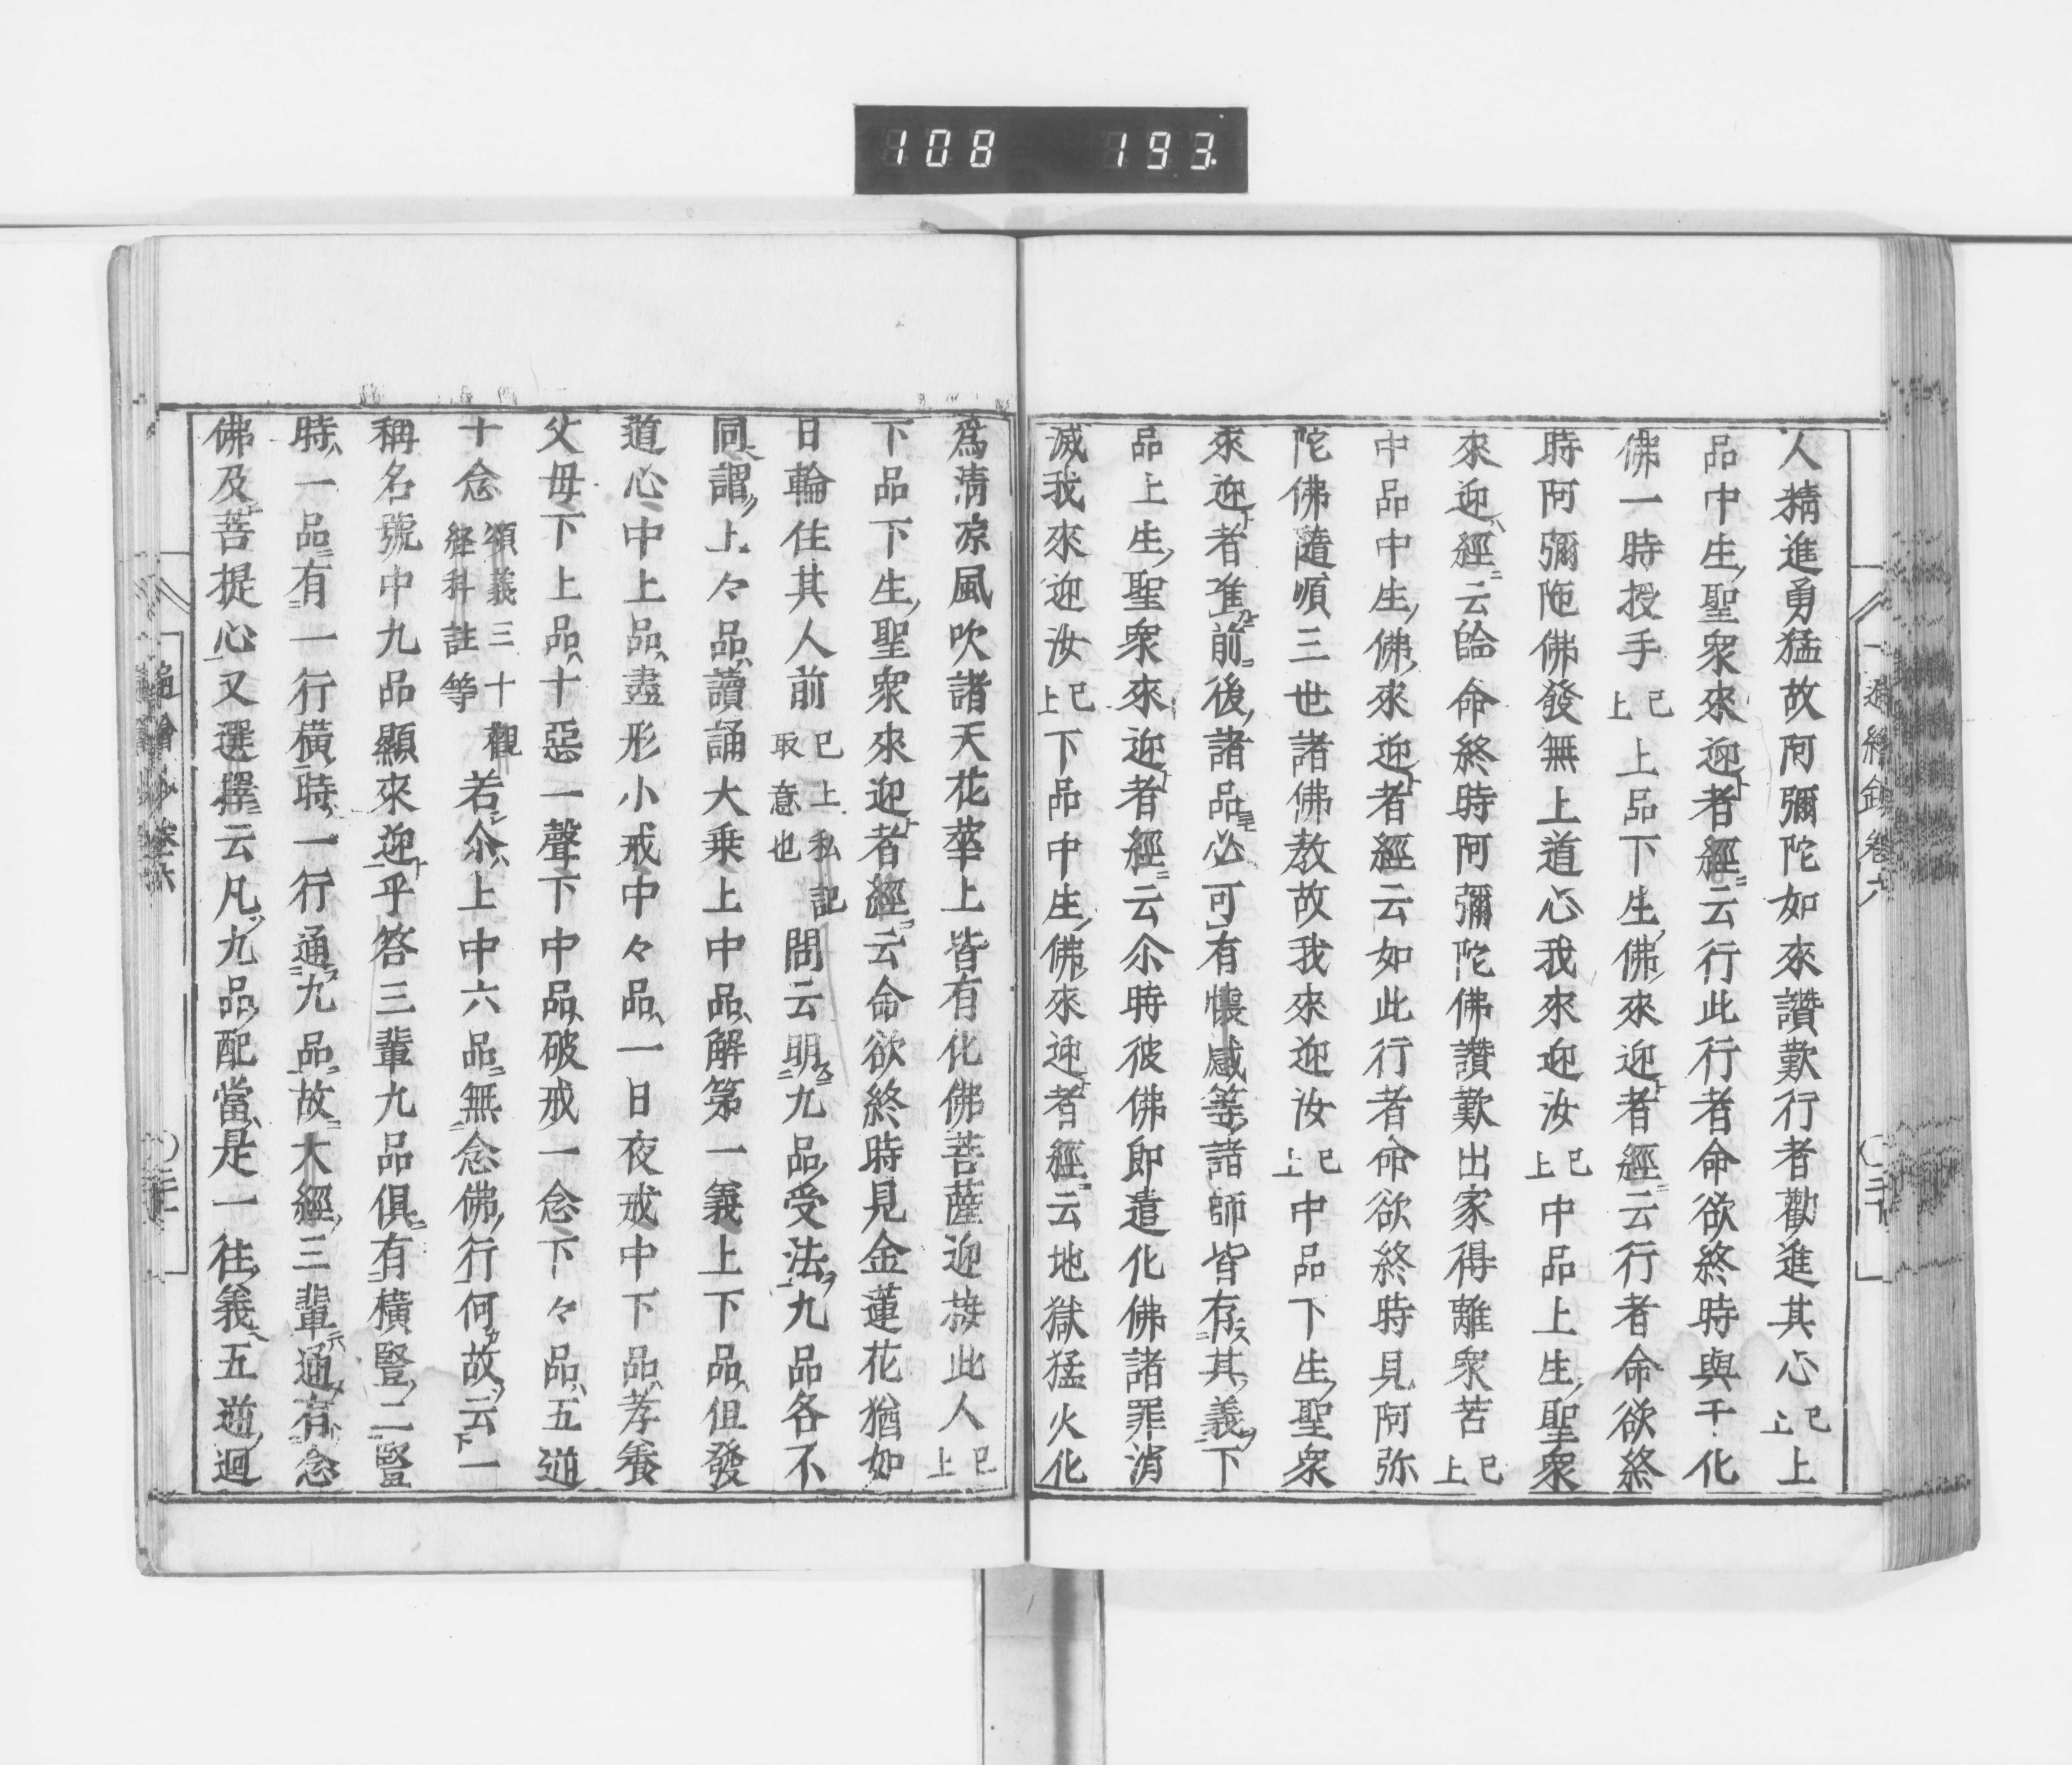 108 193
人精進勇猛故阿彌陀如來讚歎行者勸進其心已上上
品中生聖衆來迎者經云行此行者命欲終時與千化
佛一時授手已上上品下生佛來迎者經云行者命欲終
時阿彌陁佛發無上道心我來迎汝已上中品上生聖衆
來迎經云臨命終時阿彌陀佛讚歎出家得離衆苦已上
中品中生佛來迎者經云如此行者命欲終時見阿弥
陀佛隨順三世諸佛教故我來迎汝已上中品下生聖衆
來迎者准前後諸品必可有懷感等諸師皆存其義下
品上生聖衆來迎者經云尒時彼佛即遣化佛諸罪消
滅我來迎汝已上下品中生佛來迎者經云地獄猛火化
爲淸凉風吹諸天花華上皆有化佛菩薩迎接此人已上
下品下生聖衆來迎者經云命欲終時見金蓮花猶如
日輪住其人前已上私記取意也問云明九品受法九品各不
同謂上々品讀誦大乗上中品解第一義上下品但發
道心中上品盡形小戒中々品一日夜戒中下品孝養
父母下上品十惡一聲下中品破戒一念下々品五逆
十念頌義三十觀經科註等若尒上中六品無念佛行何故云一
稱名號中九品顯來迎乎答三輩九品俱有橫豎二豎
時一品有一行橫時一行通九品故大經三輩通有念
佛及菩提心又選擇云凡九品配當是一往義五逆迴